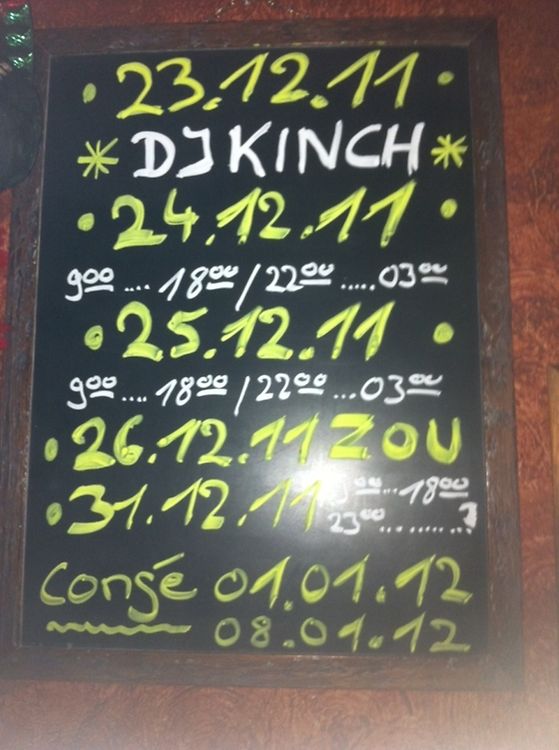 • 23.12.11 •
* DJ KINCH *
• 24.12.11 •
9⁰⁰ .... 18⁰⁰ / 22⁰⁰ ..... 03⁰⁰
• 25.12.11 •
9⁰⁰ .... 18⁰⁰ / 22⁰⁰ ... 03⁰⁰
• 26.12.11 ZOU
• 31.12.11 9⁰⁰ ... 18⁰⁰
23⁰⁰ ........ ?
Congé 01.01.12
08.01.12